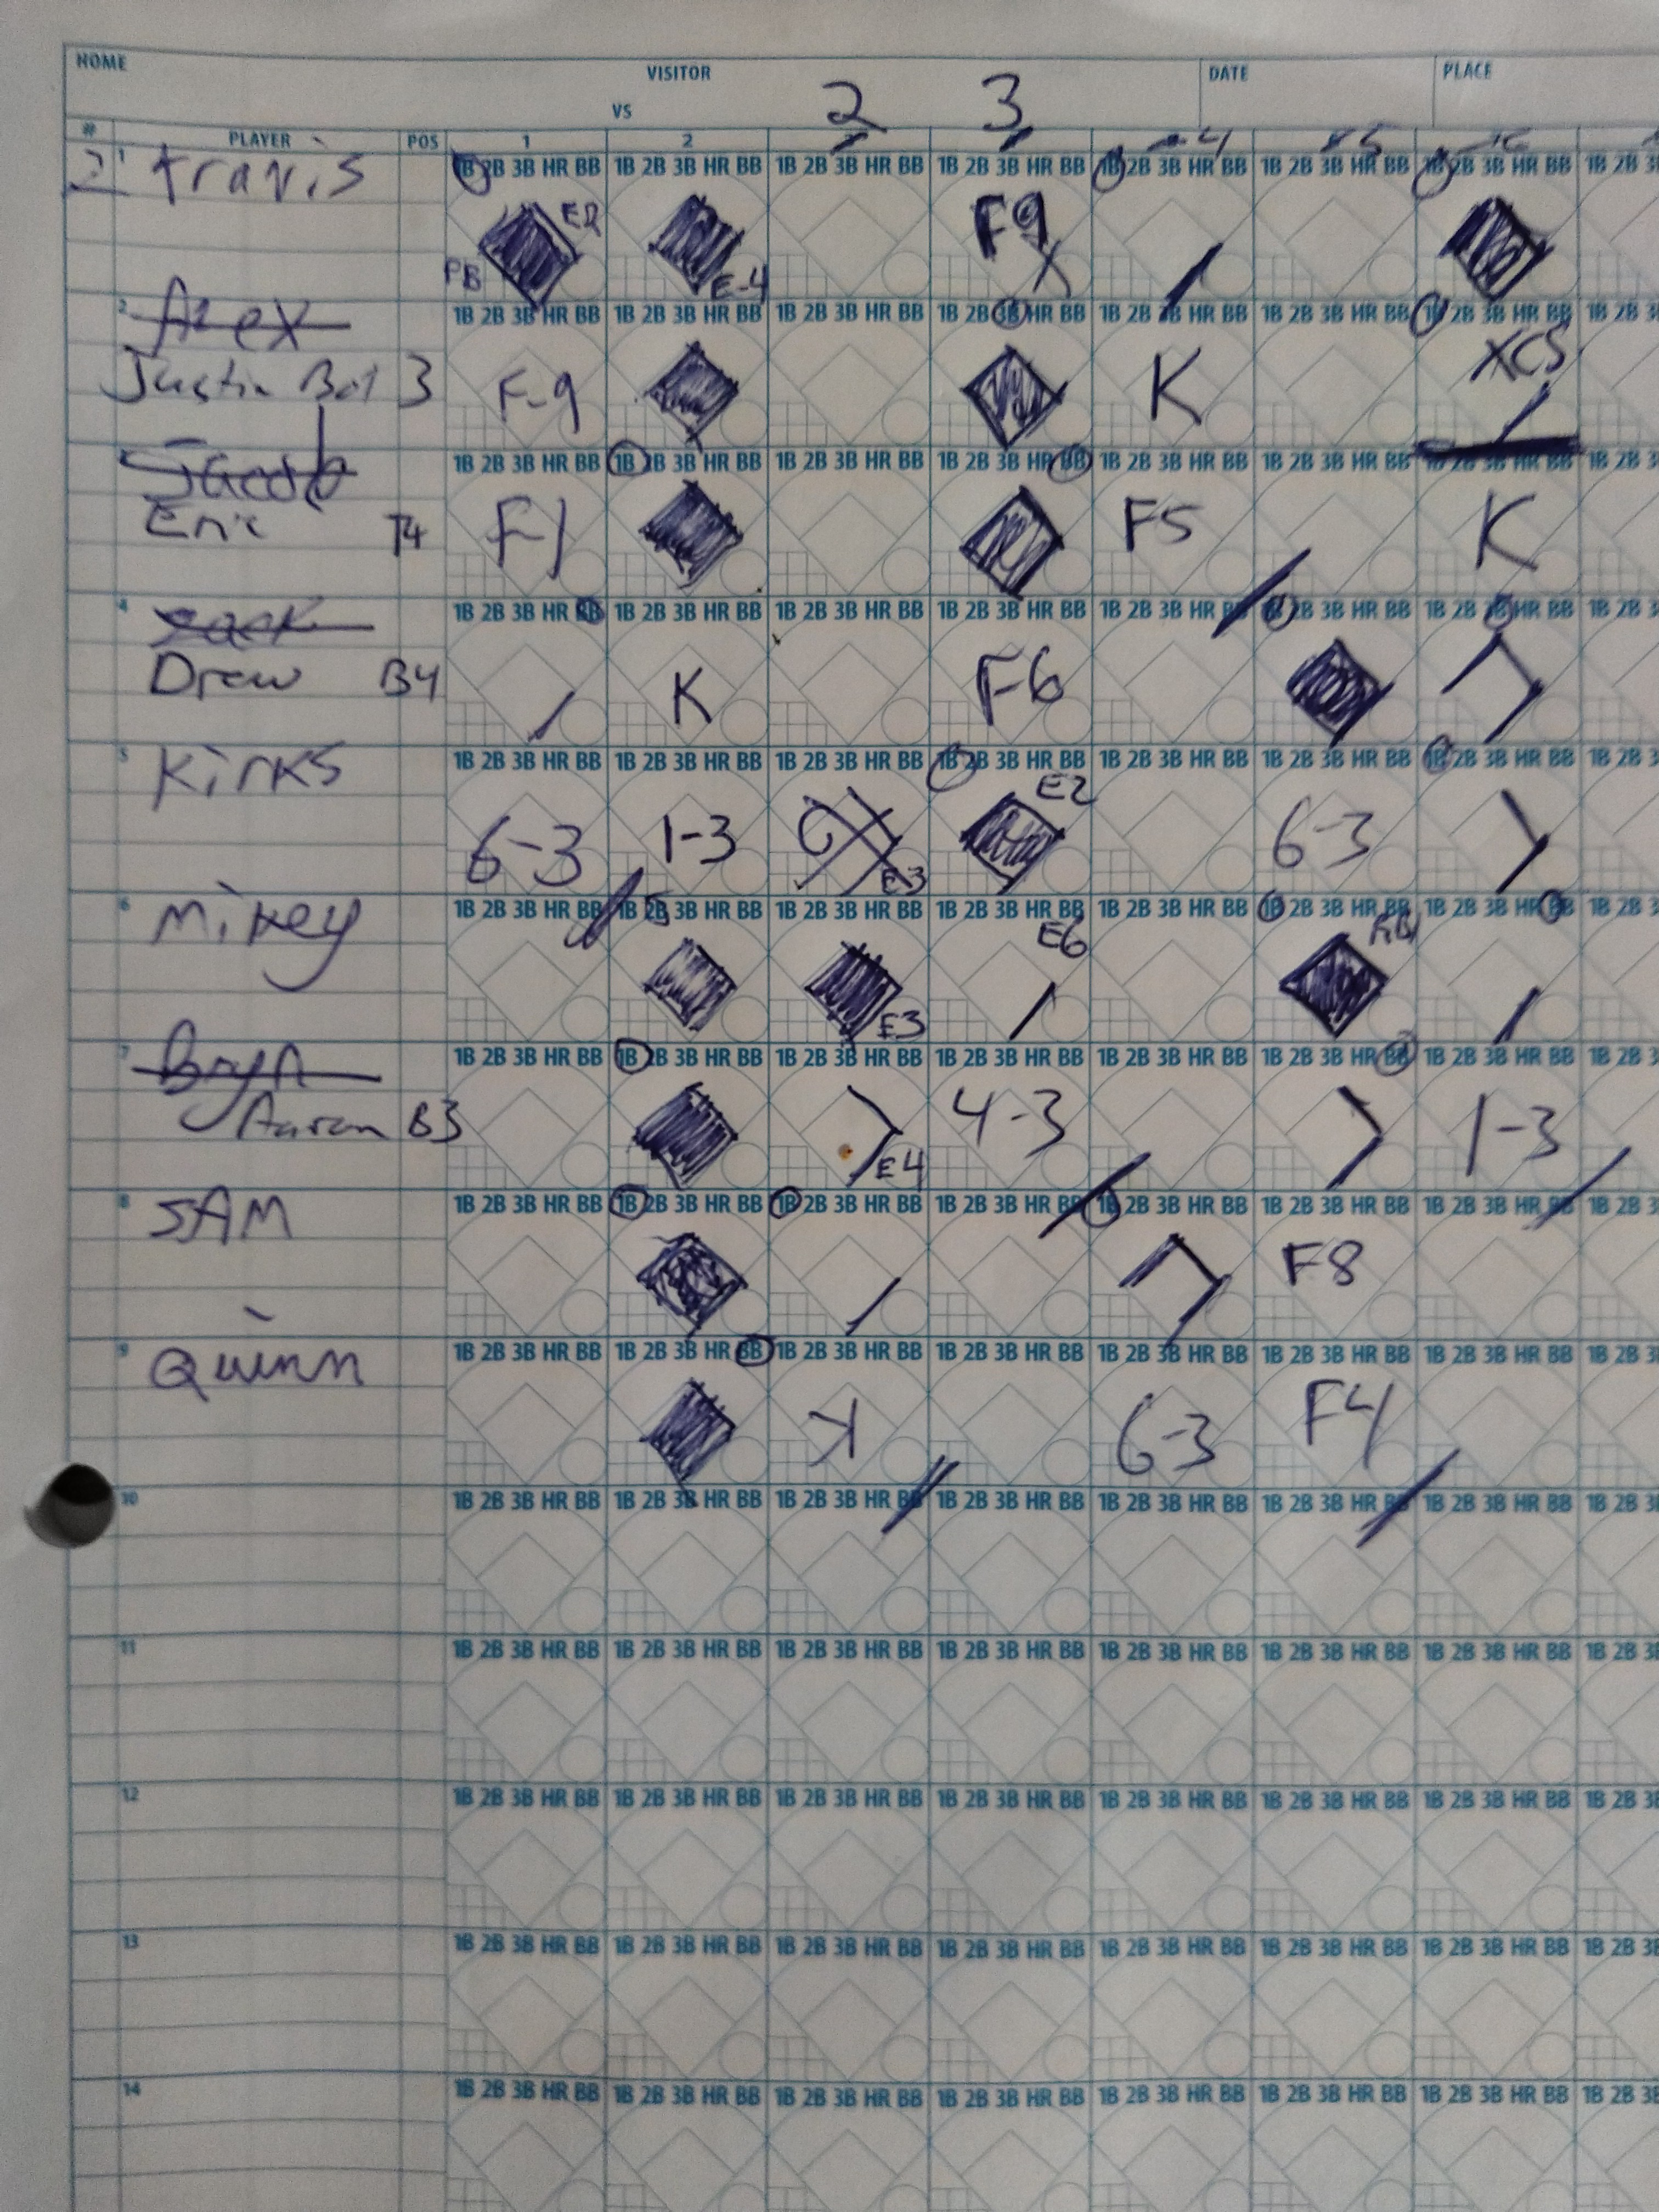 HOME VISITOR DATE PLACE
VS 2 3
# PLAYER POS 1 2 4 5
1 travis 1B 2B 3B HR BB 1B 2B 3B HR BB 1B 2B 3B HR BB 1B 2B 3B HR BB 1B 2B 3B HR BB 1B 2B 3B HR BB 1B 2B 3B HR BB 1B 2B 3
E2 F9
PB E-4
2 Alex 1B 2B 3B HR BB 1B 2B 3B HR BB 1B 2B 3B HR BB 1B 2B 3B HR BB 1B 2B 3B HR BB 1B 2B 3B HR BB 1B 2B 3B HR BB 1B 2B 3
Justin Bot 3 F-9 K CS
Jacob 1B 2B 3B HR BB 1B 2B 3B HR BB 1B 2B 3B HR BB 1B 2B 3B HR BB 1B 2B 3B HR BB 1B 2B 3B HR BB 1B 2B 3B HR BB 1B 2B 3
Eric T4 F-1 F5 K
4 1B 2B 3B HR BB 1B 2B 3B HR BB 1B 2B 3B HR BB 1B 2B 3B HR BB 1B 2B 3B HR BB 1B 2B 3B HR BB 1B 2B 3B HR BB 1B 2B 3
Drew B4 K F-6
5 Kirks 1B 2B 3B HR BB 1B 2B 3B HR BB 1B 2B 3B HR BB 1B 2B 3B HR BB 1B 2B 3B HR BB 1B 2B 3B HR BB 1B 2B 3B HR BB 1B 2B 3
6-3 1-3 E3 E2 6-3
6 Mikey 1B 2B 3B HR BB 1B 2B 3B HR BB 1B 2B 3B HR BB 1B 2B 3B HR BB 1B 2B 3B HR BB 1B 2B 3B HR BB 1B 2B 3B HR BB 1B 2B 3
E3 E6
7 Bryn 1B 2B 3B HR BB 1B 2B 3B HR BB 1B 2B 3B HR BB 1B 2B 3B HR BB 1B 2B 3B HR BB 1B 2B 3B HR BB 1B 2B 3B HR BB 1B 2B 3
Aaron B3 E4 4-3 1-3
8 SAM 1B 2B 3B HR BB 1B 2B 3B HR BB 1B 2B 3B HR BB 1B 2B 3B HR BB 1B 2B 3B HR BB 1B 2B 3B HR BB 1B 2B 3B HR BB 1B 2B 3
F8
9 Quinn 1B 2B 3B HR BB 1B 2B 3B HR BB 1B 2B 3B HR BB 1B 2B 3B HR BB 1B 2B 3B HR BB 1B 2B 3B HR BB 1B 2B 3B HR BB 1B 2B 3
K 6-3 F4
10 1B 2B 3B HR BB 1B 2B 3B HR BB 1B 2B 3B HR BB 1B 2B 3B HR BB 1B 2B 3B HR BB 1B 2B 3B HR BB 1B 2B 3B HR BB 1B 2B 3
11 1B 2B 3B HR BB 1B 2B 3B HR BB 1B 2B 3B HR BB 1B 2B 3B HR BB 1B 2B 3B HR BB 1B 2B 3B HR BB 1B 2B 3B HR BB 1B 2B 3
12 1B 2B 3B HR BB 1B 2B 3B HR BB 1B 2B 3B HR BB 1B 2B 3B HR BB 1B 2B 3B HR BB 1B 2B 3B HR BB 1B 2B 3B HR BB 1B 2B 3
13 1B 2B 3B HR BB 1B 2B 3B HR BB 1B 2B 3B HR BB 1B 2B 3B HR BB 1B 2B 3B HR BB 1B 2B 3B HR BB 1B 2B 3B HR BB 1B 2B 3
14 1B 2B 3B HR BB 1B 2B 3B HR BB 1B 2B 3B HR BB 1B 2B 3B HR BB 1B 2B 3B HR BB 1B 2B 3B HR BB 1B 2B 3B HR BB 1B 2B 3